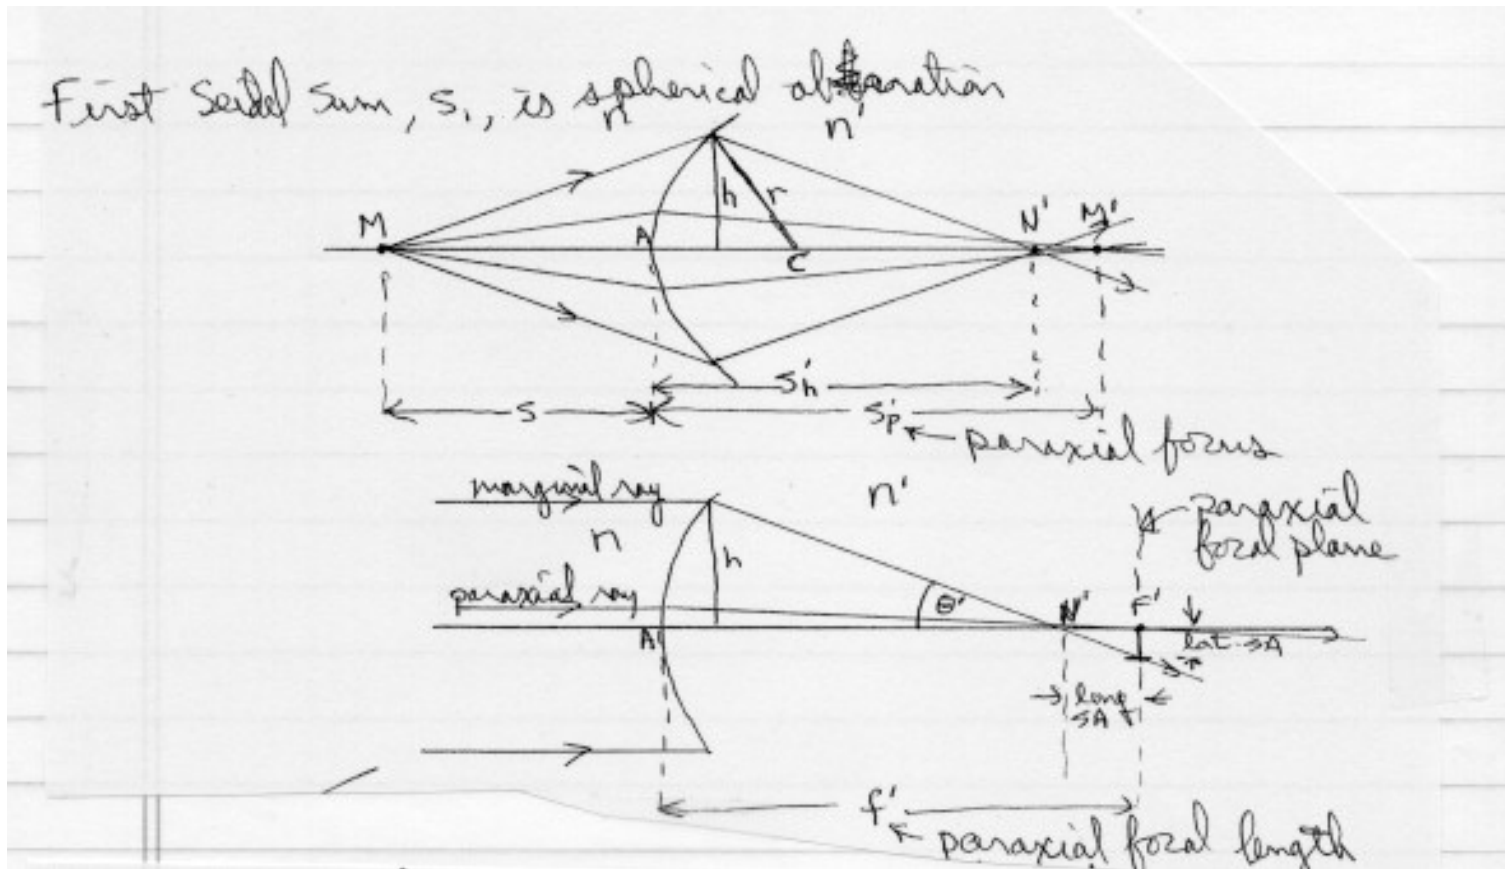 First Seidel Sum, S₁, is spherical aberration
n
n'
h
r
M
A
C
N'
M'
S'h
S
S'p
paraxial focus
marginal ray
n'
paraxial
focal plane
n
h
paraxial ray
θ'
N'
F'
A'
lat. SA
long
SA
f'
paraxial focal length